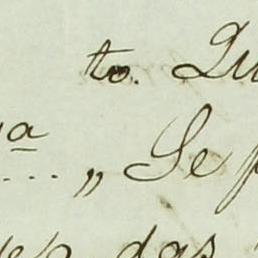 to. Qu
a .... „ Se p
das